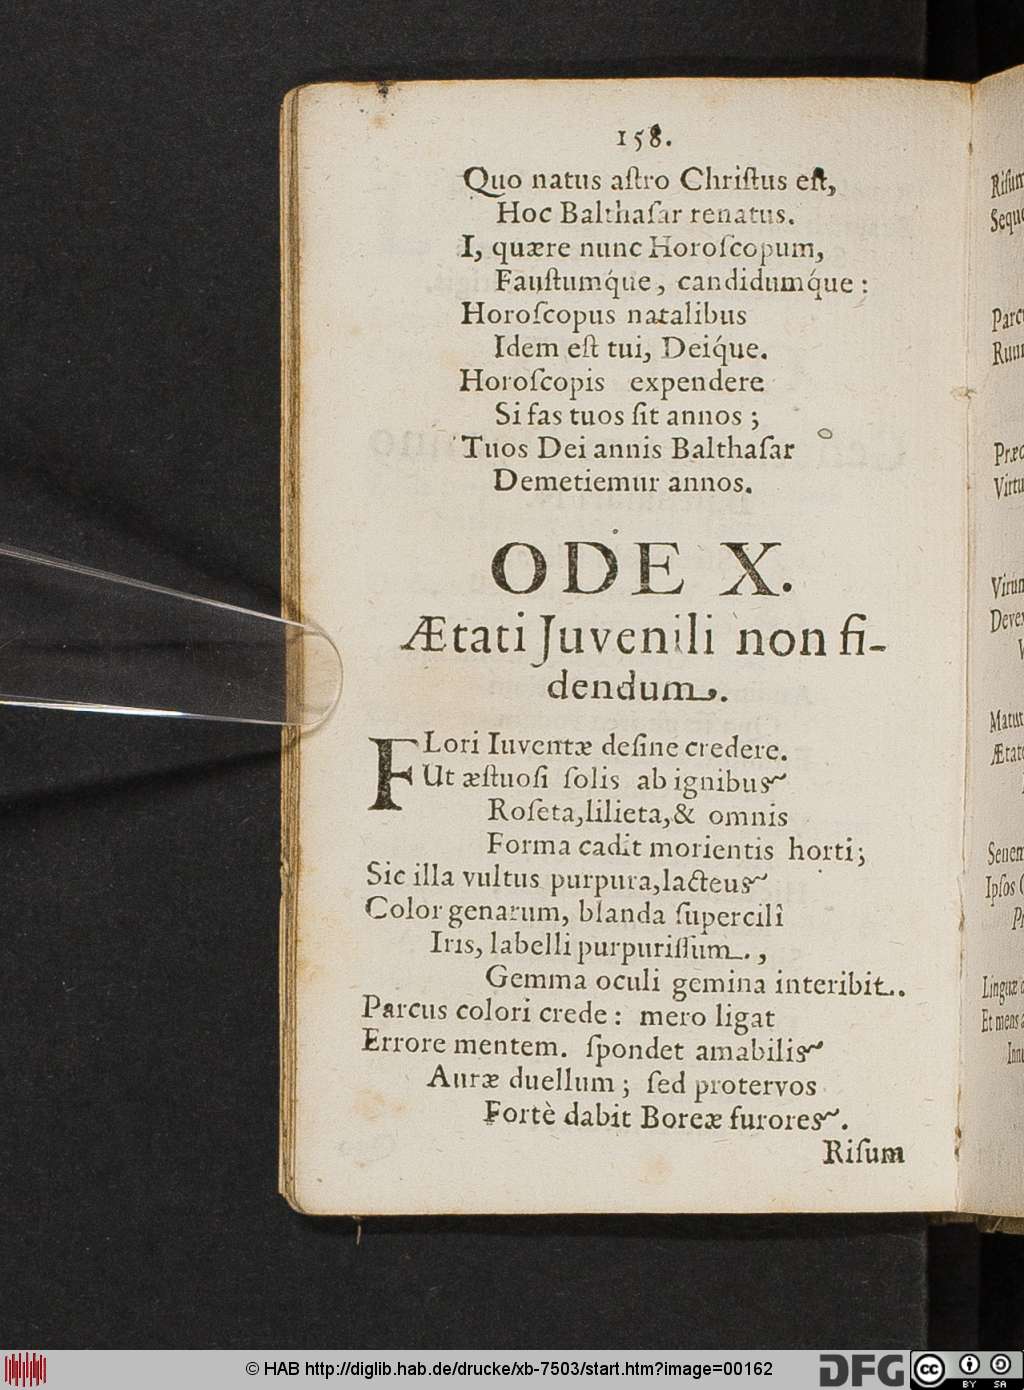 158.
Quo natus aſtro Chriſtus eſt,
Hoc Balthaſar renatus.
I, quære nunc Horoſcopum,
Fauſtumq́ue, candidumq́ue :
Horoſcopus natalibus
Idem eſt tui, Deiq́ue.
Horoſcopis expendere
Si fas tuos ſit annos ;
Tuos Dei annis Balthaſar
Demetiemur annos.
ODE X.
Ætati Juvenili non fi-
dendum.
FLori Iuventæ deſine credere.
Ut æſtuoſi ſolis ab ignibus
Roſeta, lilieta, & omnis
Forma cadit morientis horti;
Sic illa vultus purpura, lacteus
Color genarum, blanda ſupercilî
Iris, labelli purpuriſſum.,
Gemma oculi gemina interibit.
Parcus colori crede : mero ligat
Errore mentem. ſpondet amabilis
Auræ duellum ; ſed protervos
Fortè dabit Boreæ furores.
Riſum
Riſum
Sequ
Parc
Ruun
Præc
Virtu
Virum
Devex
V
Matur
Ætate
Senem
Ipſos
Pr
Linguæ
Et mens
Innu
© HAB http://diglib.hab.de/drucke/xb-7503/start.htm?image=00162
DFG
cc BY SA